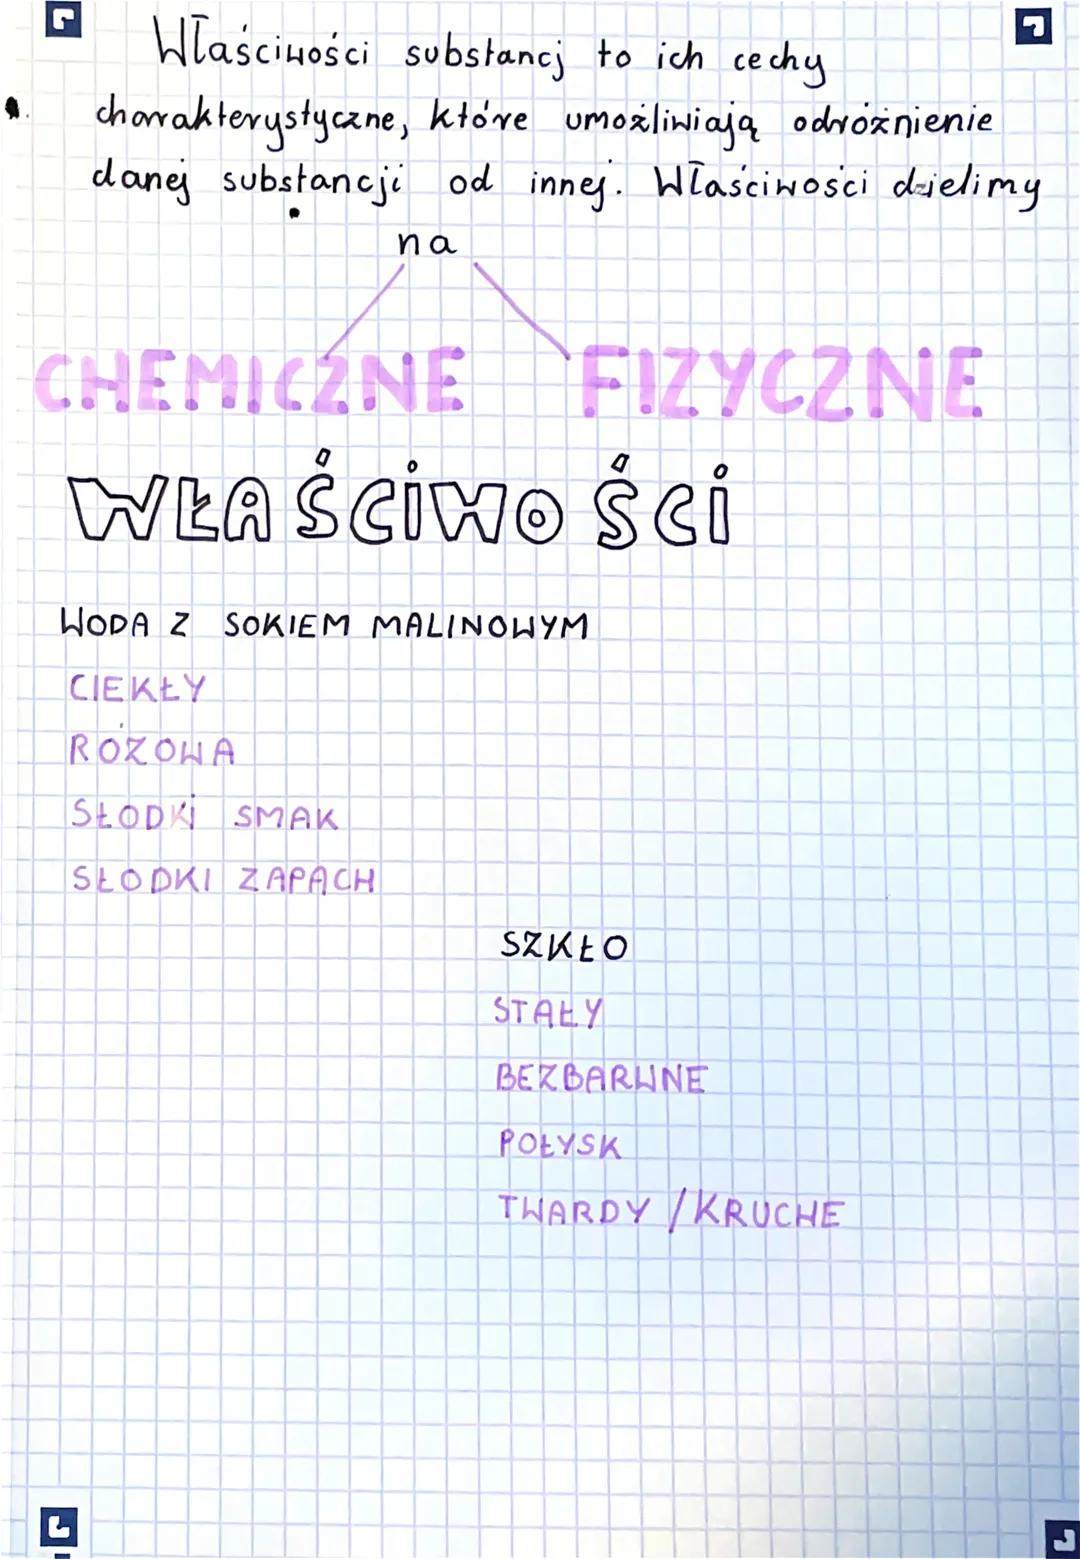 Właściwości substancj to ich cechy
charakterystyczne, które umożliwiają odróżnienie
danej substancji od innej. Właściwości dzielimy
na
CHEMICZNE FIZYCZNE
WŁAŚCIWOŚCI
WODA Z SOKIEM MALINOWYM
CIEKŁY
RÓŻOWA
SŁODKi SMAK
SŁODKI ZAPACH
SZKŁO
STAŁY
BEZBARWNE
POŁYSK
TWARDY / KRUCHE